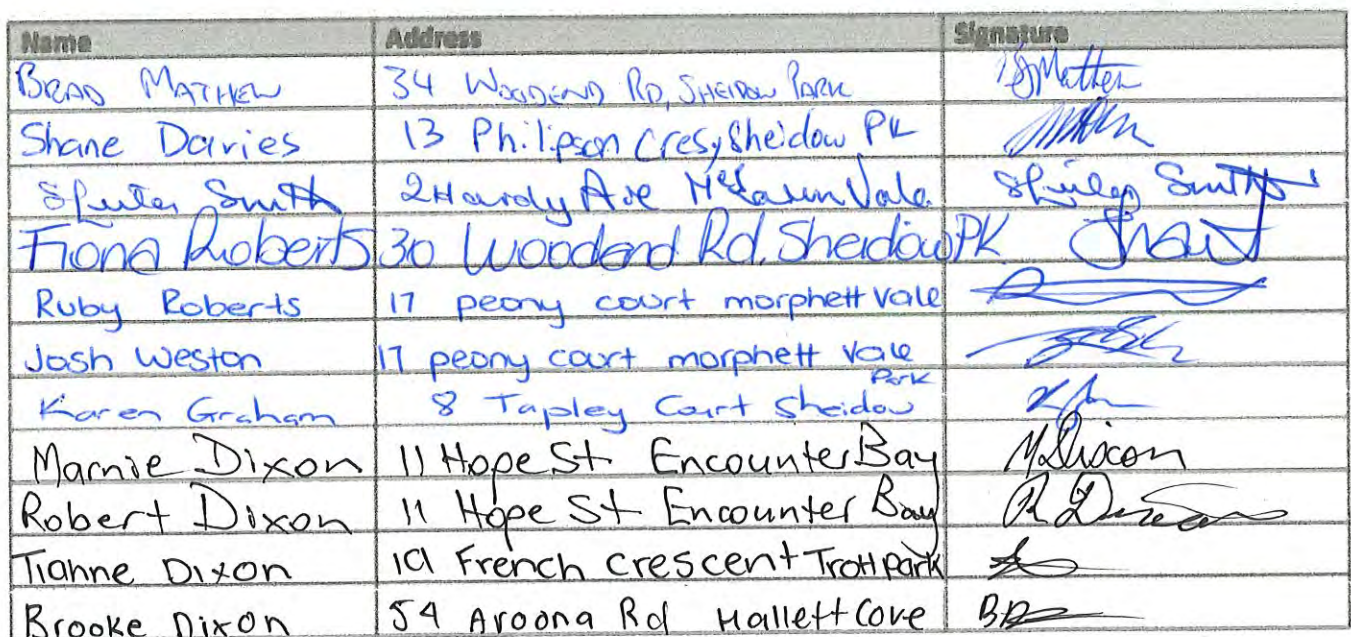 Name Address Signature
BRAD MATHEW 34 WOODEND RD, SHEIDOW PARK
Shane Davies 13 Philipson Cres, Sheidow PK
Smith 2 Hardy Ave McLaren Vale Smith
Fiona Roberts 30 Woodend Rd, Sheidow PK
Ruby Roberts 17 peony court morphett vale
Josh Weston 17 peony court morphett vale
Karen Graham 8 Tapley Court Sheidow Park
Marnie Dixon 11 Hope St Encounter Bay M Dixon
Robert Dixon 11 Hope St Encounter Bay
Tianne Dixon French crescent Trott park
Brooke Dixon 54 Aroona Rd Hallett Cove